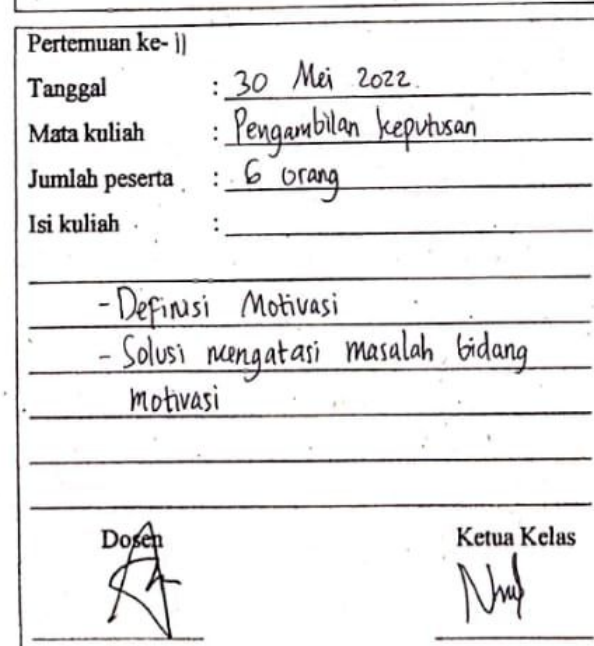 Pertemuan ke- 11
Tanggal : 30 Mei 2022.
Mata kuliah : Pengambilan keputusan
Jumlah peserta : 6 orang
Isi kuliah :
- Definisi Motivasi
- Solusi mengatasi masalah bidang
motivasi
Dosen Ketua Kelas